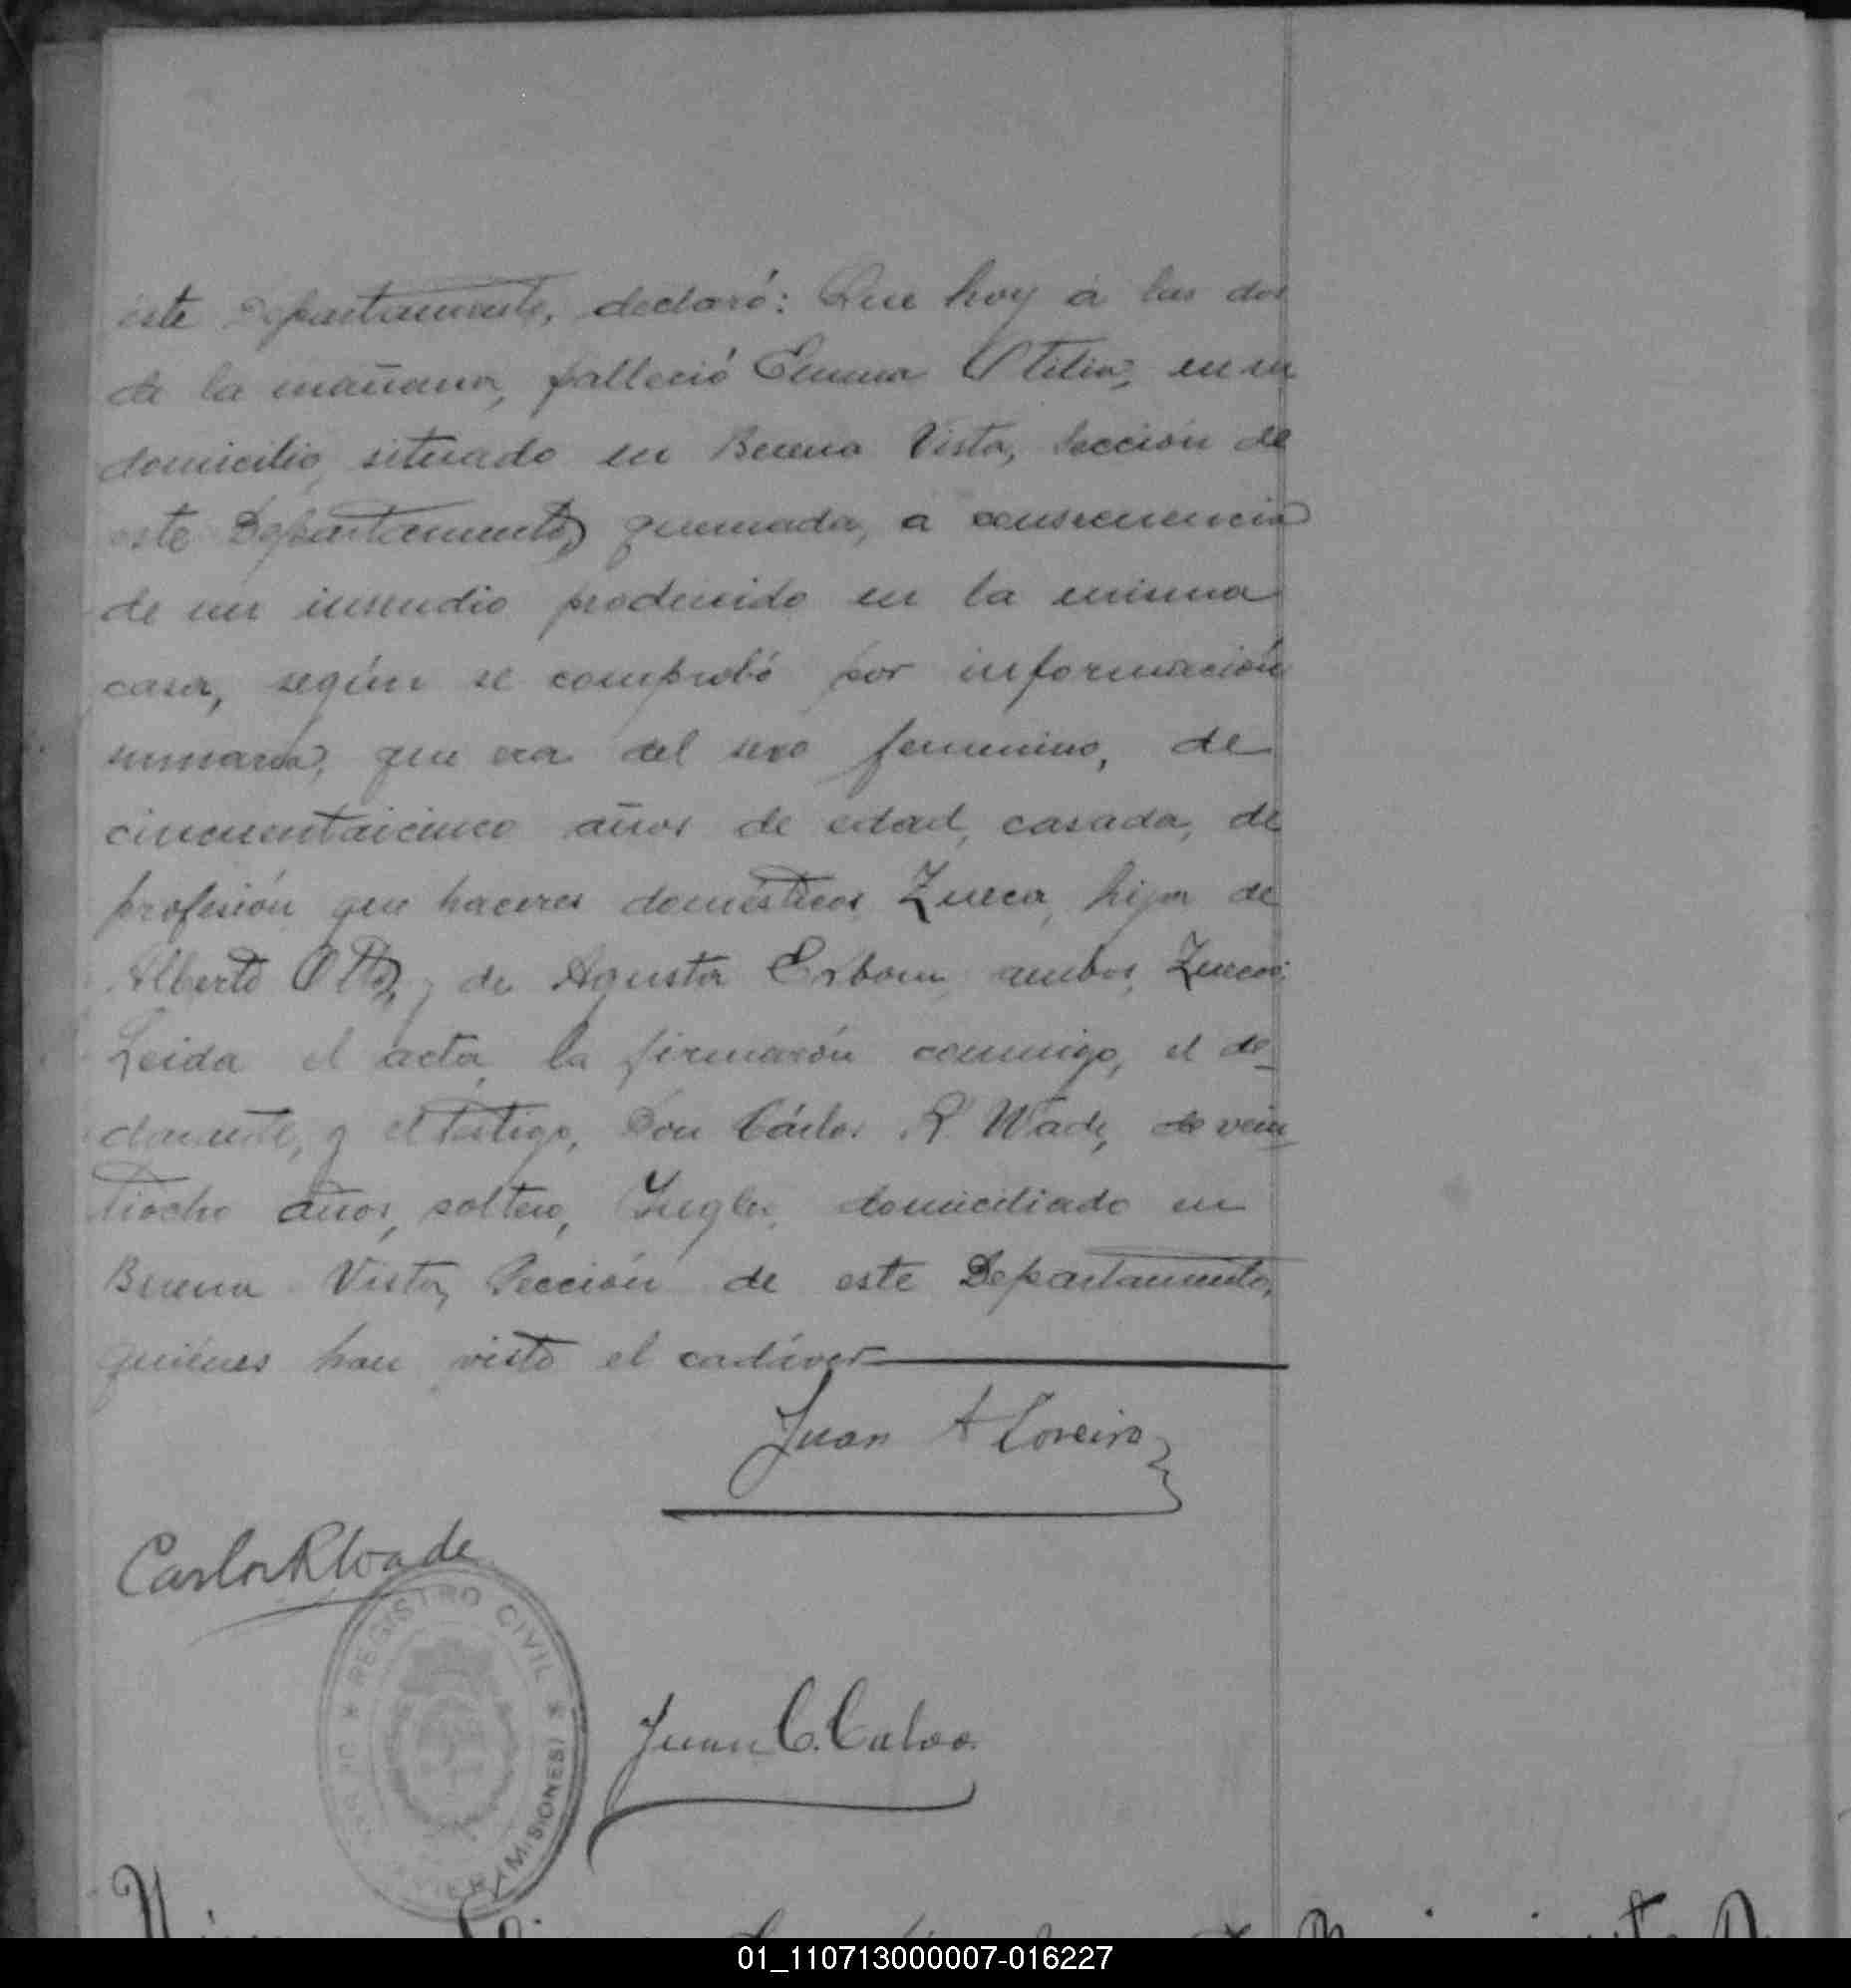 este Departamento, declaró: Que hoy á las dos
de la mañana, falleció Emma Otilia, en su
domicilio, situado en Buena Vista, Sección de
este Departamento, quemada, á consecuencia
de un insendio producido en la misma
casa, según se comprobó por información
sumaria, que era del sexo femenino, de
cincuentaicinco años de edad, casada, de
profesión que haceres domésticos, Zueca, hija de
Alberto Otto, y de Agusta Erbom, ambos Zuecos.
Leida el acta la firmarón conmigo, el de-
clarante, y el testigo, Don Cárlos R. Wade, de vein-
tiocho años, soltero, Ingles, domiciliado en
Buena Vista, Sección de este Departamento,
quiénes han visto el cadáver
Juan A Loreiro
Carlos R Wade
REGISTRO CIVIL
(MISIONES)
Juan C. Calvo.
01_110713000007-016227